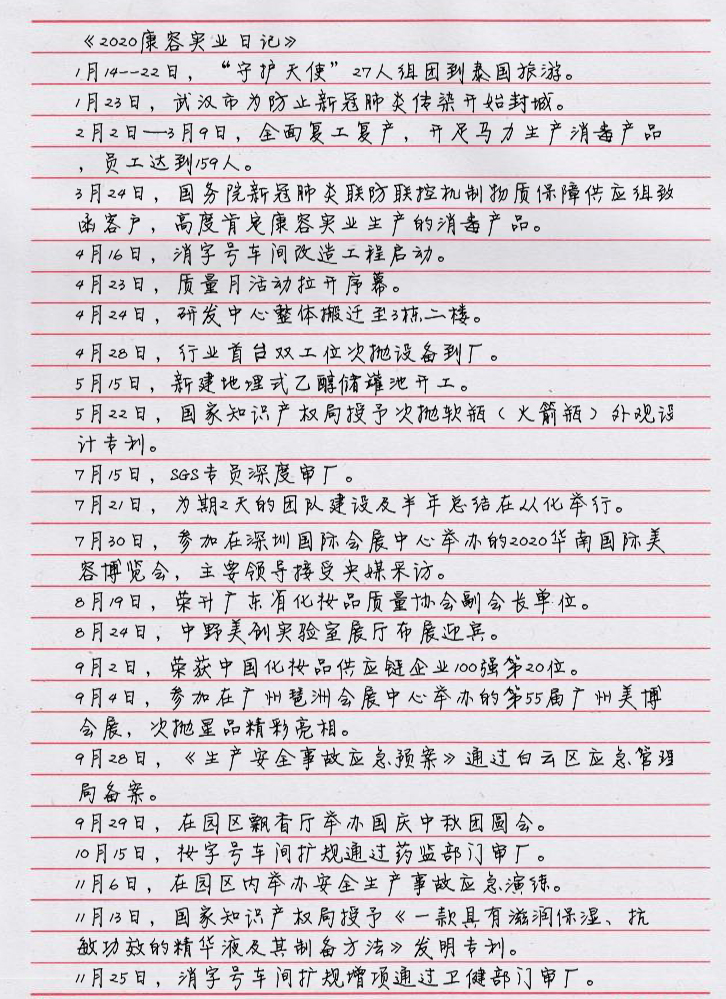 《2020康容实业日记》
1月14--22日，“守护天使”27人组团到泰国旅游。
1月23日，武汉市为防止新冠肺炎传染开始封城。
2月2日—3月9日，全面复工复产，开足马力生产消毒产品
，员工达到159人。
3月24日，国务院新冠肺炎联防联控机制物质保障供应组致
函客户，高度肯定康容实业生产的消毒产品。
4月16日，消字号车间改造工程启动。
4月23日，质量月活动拉开序幕。
4月24日，研发中心整体搬迁至3栋二楼。
4月28日，行业首台双工位次抛设备到厂。
5月15日，新建地埋式乙醇储罐池开工。
5月22日，国家知识产权局授予次抛软瓶（火箭瓶）外观设
计专利。
7月15日，SGS专员深度审厂。
7月21日，为期2天的团队建设及半年总结在从化举行。
7月30日，参加在深圳国际会展中心举办的2020华南国际美
容博览会，主要领导接受央媒采访。
8月19日，荣升广东省化妆品质量协会副会长单位。
8月24日，中野美创实验室展厅布展迎宾。
9月2日，荣获中国化妆品供应链企业100强第20位。
9月4日，参加在广州琶洲会展中心举办的第55届广州美博
会展，次抛星品精彩亮相。
9月28日，《生产安全事故应急预案》通过白云区应急管理
局备案。
9月29日，在园区飘香厅举办国庆中秋团圆会。
10月15日，妆字号车间扩规通过药监部门审厂。
11月6日，在园区内举办安全生产事故应急演练。
11月13日，国家知识产权局授予《一款具有滋润保湿、抗
敏功效的精华液及其制备方法》发明专利。
11月25日，消字号车间扩规增项通过卫健部门审厂。